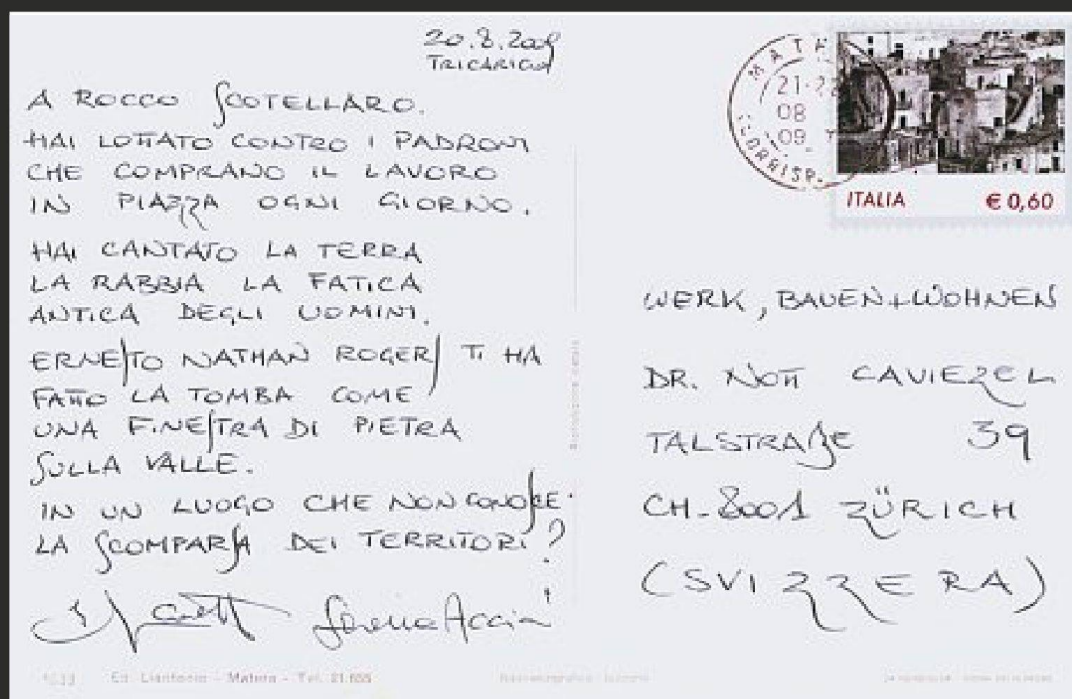 20.8.2009
TRICARICO
A ROCCO SCOTELLARO.
HAI LOTTATO CONTRO I PADRONI
CHE COMPRANO IL LAVORO
IN PIAZZA OGNI GIORNO.
HAI CANTATO LA TERRA
LA RABBIA LA FATICA
ANTICA DEGLI UOMINI.
ERNESTO NATHAN ROGERS TI HA
FATTO LA TOMBA COME
UNA FINESTRA DI PIETRA
SULLA VALLE.
IN UN LUOGO CHE NON CONOSCE
LA SCOMPARSA DEI TERRITORI?
ITALIA € 0,60
WERK, BAUEN+WOHNEN
DR. NOTT CAVIEZEL
TALSTRAßE 39
CH-8001 ZÜRICH
(SVIZZERA)
Matera - Tel. 21.655